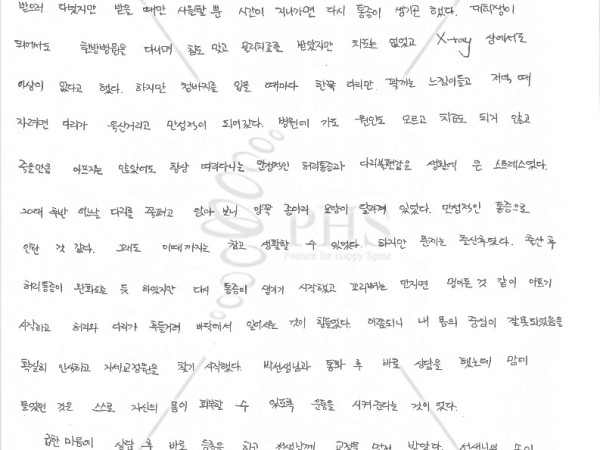 받으러 다녔지만 받을 때만 시원할 뿐 시간이 지나가면 다시 통증이 생기곤 했다. 대학생이
되어서도 한방병원을 다니며 침도 맞고 물리치료를 받았지만 차도는 없었고 X-ray 상에서도
이상이 없다고 했다. 하지만 청바지를 입을 때마다 한쪽 다리만 꽉끼는 느낌이들고 저녁 때
자려하면 다리가 욱신거리고 만성적이 되어갔다. 병원에 가도 원인도 모르고 치료도 되지 않고
죽을만큼 아프지는 않았어도 항상 따라다니는 만성적인 허리통증과 다리불편감은 생활에 큰 스트레스였다.
20대 후반 어느날 다리를 쭉펴고 앉아 보니 양쪽 종아리 모양이 달라져 있었다. 만성적인 통증으로
인한 것 같다. 그래도 이때까지는 참고 생활할 수 있었다. 하지만 문제는 출산후였다. 출산 후
허리통증이 완화되는 듯 하였지만 다시 통증이 생기기 시작했고 꼬리뼈는 만지면 멍이든 것 같이 아프기
시작하고 허리와 다리가 욱들거려 바닥에서 일어서는 것이 힘들었다. 이쯤되니 내 몸의 중심이 잘못되었음을
확실히 인식하고 자세교정원을 찾기 시작했다. 박선생님과 통화 후 바로 상담을 했는데 맘에
들었던 것은 스스로 자신의 몸이 회복할 수 있도록 운동을 시켜준다는 것이 었다.
급한 마음에 상담 후 바로 운동을 하고 선생님께 교정을 먼저 받았다. 선생님의
PHS
Posture for Happy Spine